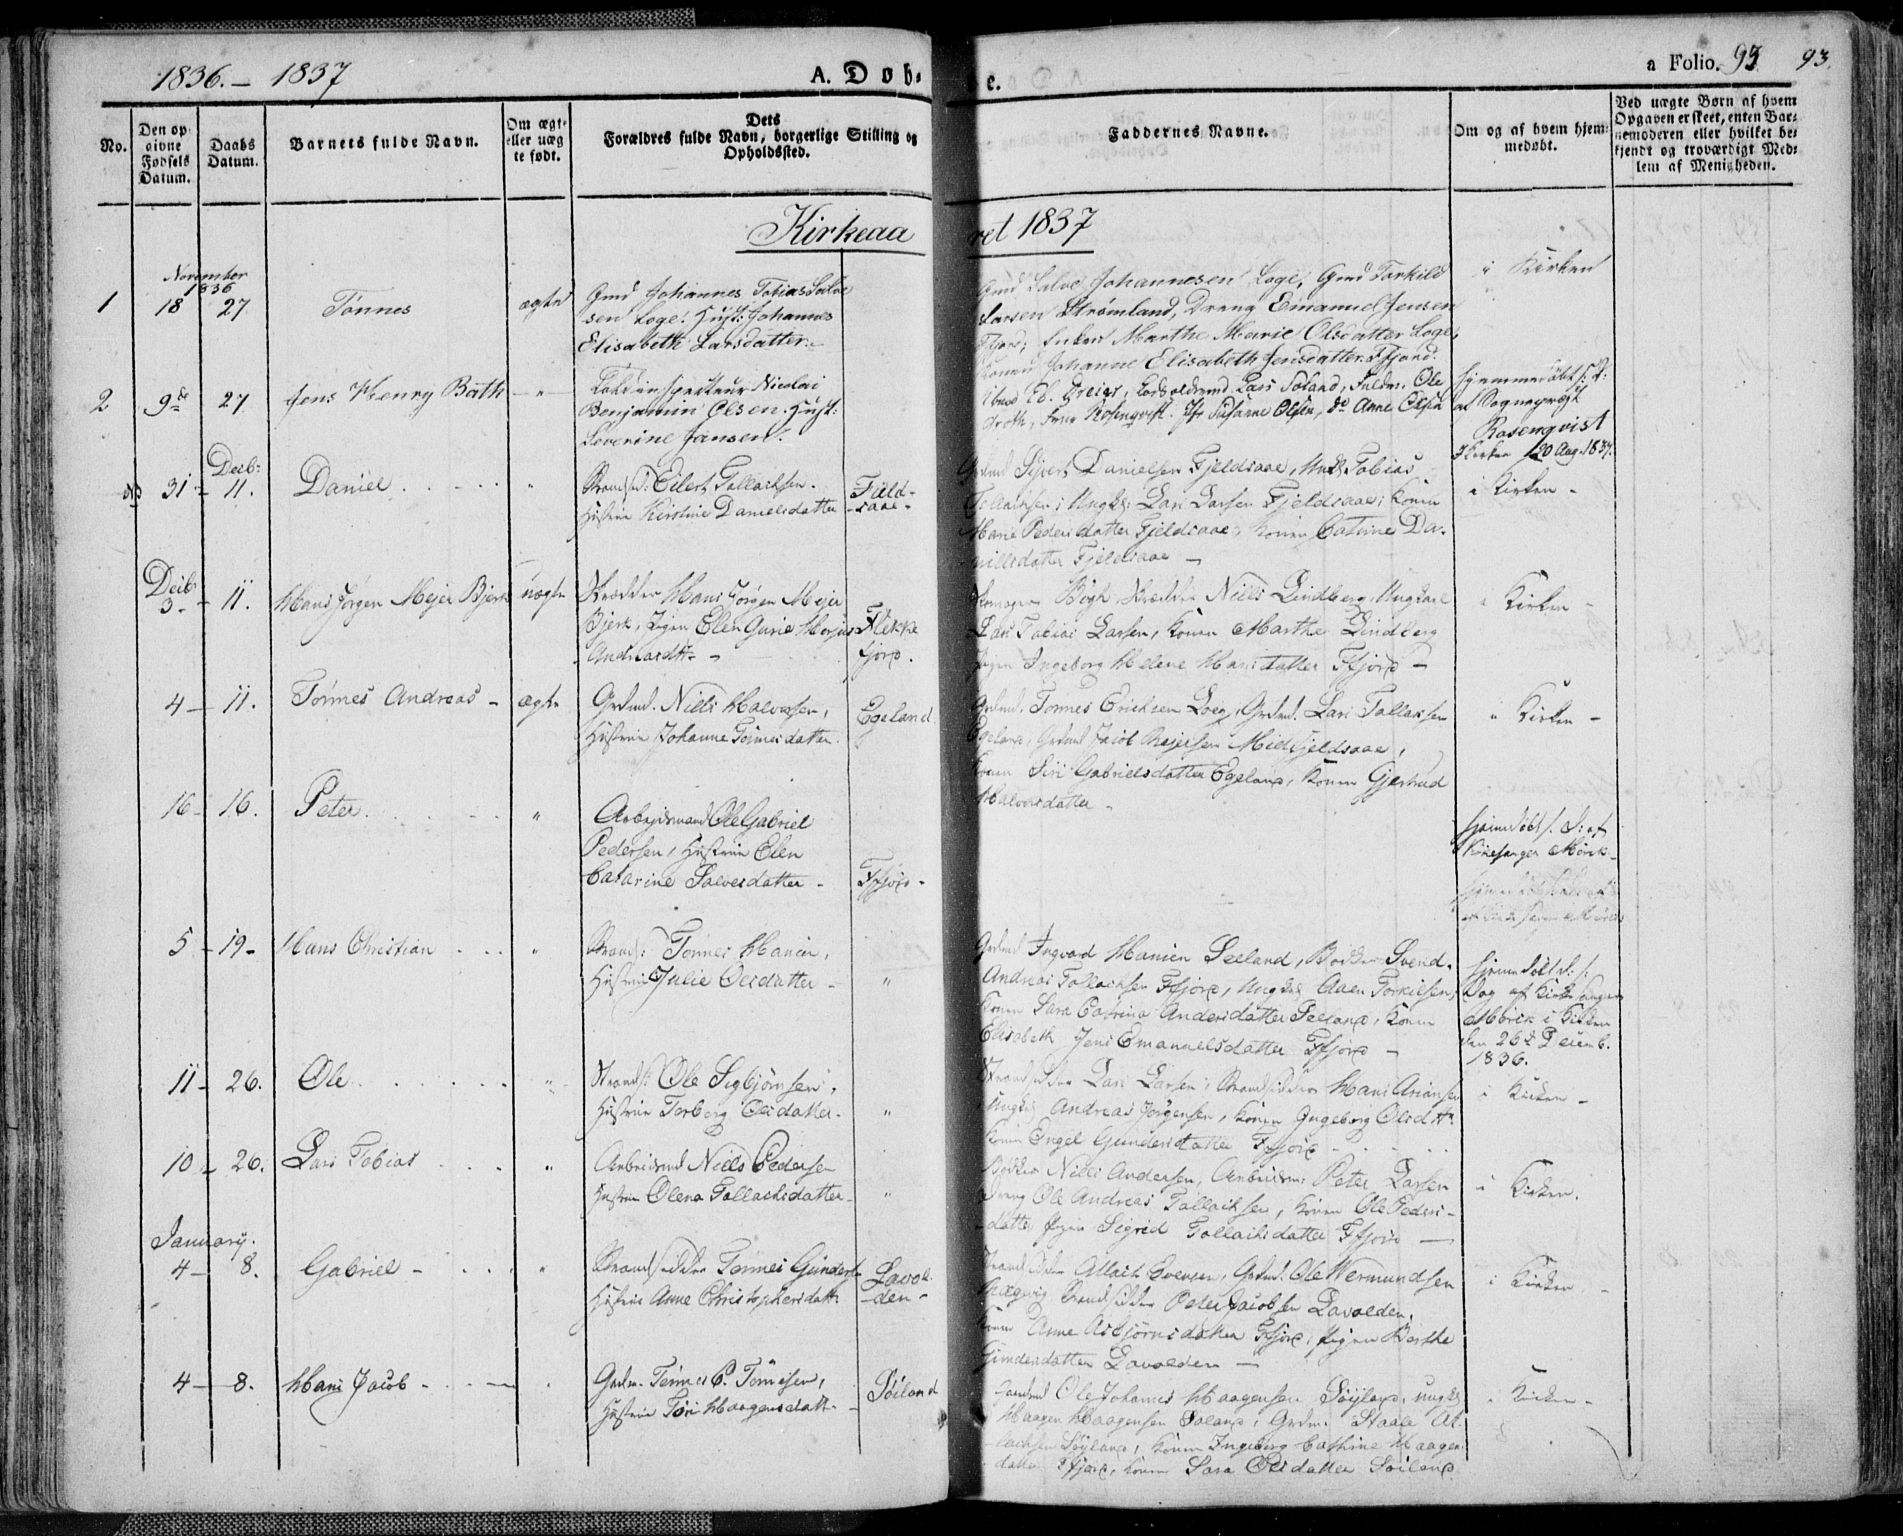 1836.- 1837
A. Døb-
e.
a Folio. 93 93.
No.
Den opgivne Fødsels Datum.
Daabs Datum.
Barnets fulde Navn.
Om ægte eller uægte født.
Dets Forældres fulde Navn, borgerlige Stilling og Opholdssted.
Faddernes Navne.
Om og af hvem hjemmedøbt.
Ved uægte Børn af hvem Opgaven er skeet, enten Barnemoderen eller hvilket bekjendt og troværdigt Medlem af Menigheden.
Kirkeaa
ret 1837
November
1836
1 18 27 Tønnes ægte Gmd Johannes Tobias Salve
sen Loge. Hust: Johannes
Elisabeth Larsdatter.
Gmd Salve Johannesen Loge, Gmd Torkild
Larsen Strømland, Dreng Emanuel Jensen
Ffjord; Enken Marthe Marie Olsdatter Loge,
Konen Johanne Elisabeth Jensdatter Ffjord.
i Kirken
2 9de 27 Jens Henry Bath - " - Toldinspecteur Nicolai
Benjamin Olsen. Hust:
Severine Jansen.
Lars Søland, Fuldm. Ole
Groth, Frue Rosenqvist. Jfr Susanne Olsen, do Anne Olsen
hjemmedøbt
af Sognepræst
Rosenqvist
i Kirken 20 Aug. 1837.
Decb:
31 - 11. Daniel " Strands: Eilert Tollachsen.
Hustrue Kirstine Danielsdatter
Fjeld-
saae-
Sivert Danielsen Fjeldsaae, Ungk Tobias
Tollachsen; Ungk: Lars Larsen Fjeldsaae; Konen
Marie Pedersdatter Fjeldsaae, Konen Catrine Da-
nielsdatter Fjeldsaae -
i Kirken -
Decb:
3 - 11. Hans Jørgen Mejer Bjerk uægte Skrædder Hans Jørgen Mejer
Bjerk, Pigen Elen Gurie
Andreasdtr -
Flekke
fjord.
Bøgh, Skrædder Niels Lindberg, Ungkarl
Lars Tobias Larsen, Konen Marthe Lindberg
Pigen Ingeborg Helene Hansdatter Ffjord -
i Kirken -
4 - 11. Tønnes Andreas - ægte Grdmd. Niels Halvorsen,
Hustrue Johanne Tønnesdatter.
Egeland
Grdmd. Tønnes Ericksen Loeg, Grdmd. Lars Tollaksen
Egeland, Grdmd Jacob Midfjeldsaae,
Konen Siri Gabrielsdatter Egeland, Konen Gjertrud
Halvorsdatter -
" Kirken -
16 - 16. Peter " Arbejdsmand Ole Gabriel
Pedersen, Hustrue Elen
Catarine Salvesdatter -
Ffjord -
hjemdøbt s. D: af
Kirkesanger Mørck -
5 - 19 - Hans Christian " Strands: Tønnes Hansen,
Hustrue Julie Olsdatter -
"
Grdmd Ingvard Hansen Seeland, Bødker Svend
Andreas Tollachsen Ffjord, Ungkl Aven Torkilsen,
Konen Sara Catrina Andersdatter Seeland, Konen
Elisabeth Jens Emanuelsdatter Ffjord -
hjemdøbt s:
Dag af Kirkesanger
Mørck i Kirken
den 26de Decemb.
1836.
11 - 26. Ole " Strands: Ole Sigbjørnsen,
Hustrue Torborg Olsdatter -
"
Strandsidder Lars Larsen, Strandsidder Hans Ariansen
Ungkl Andreas Jørgensen, Konen Ingeborg Olsdtr
Konen Engel Gundersdatter Ffjord -
i Kirken -
10 - 26. Lars Tobias " Arbeidsmd Niels Pedersen
Hustrue Olena Tollachsdatter -
"
Bødker Niels Andersen, Arbeidsm: Peter Larsen
Dreng Ole Andreas Tollachsen, Konen Ole Peders-
datter Pigen Sigrid Tollachsdatter Ffjord -
i Kirken.
January.
4 - 8. Gabriel - " Strandsidder Tønnes Gundersen
Hustrue Anne Christophersdatter
Lavol-
den -
Strandsidder Atlach Svensen, Grdmd. Ole Wermundsen
Strandsidder Peter Jacobsen Lavolden,
Konen Anne Asbjørnsdatter Ffjord, Pigen Berthe
Gundersdatter Lavolden -
i Kirken -
4 - 8. Hans Jacob - Grdm. Tønnes P. Tønnesen,
Hustrue Tøri Haagensdatter -
Søiland
Gaardmd Ole Johannes Haagensen Søyland, Ungkl
Haagen Haagensen Søland, Grdm. Staale At-
lachsen Søyland, Konen Ingeborg Cathine Haagens-
datter Ffjord, Konen Sara Olsdatter Søiland
i Kirken -